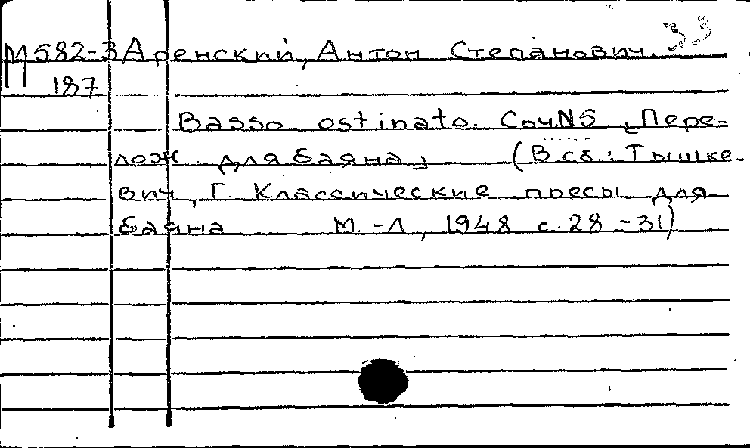 М582-3 Аренский, Антон Степанович. 33
187
Basso ostinato. Соч N5 [Пере-
лож для баяна] (В сб: Тышке-
вич, Г. Классические пьесы для
баяна М.-Л, 1948 с. 28-31)